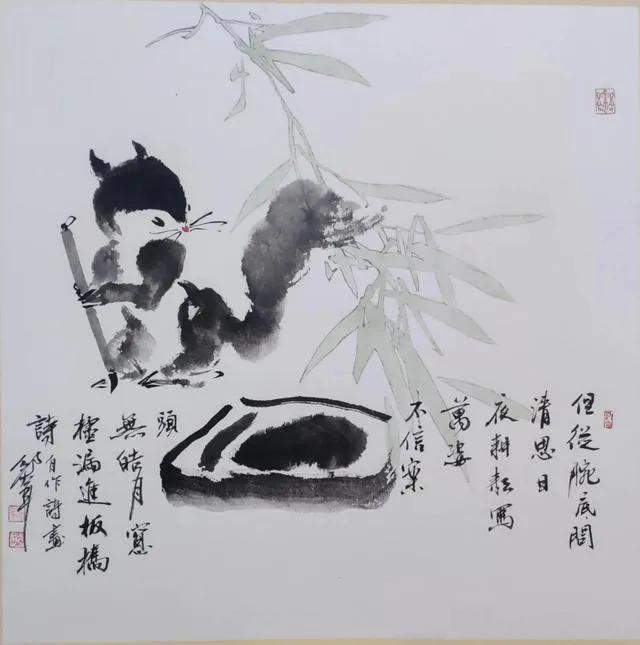 但從腕底問
清思日
夜耕耘寫
萬姿
不信案
頭
無皓月窻
櫺漏進板橋
詩 自作詩畫